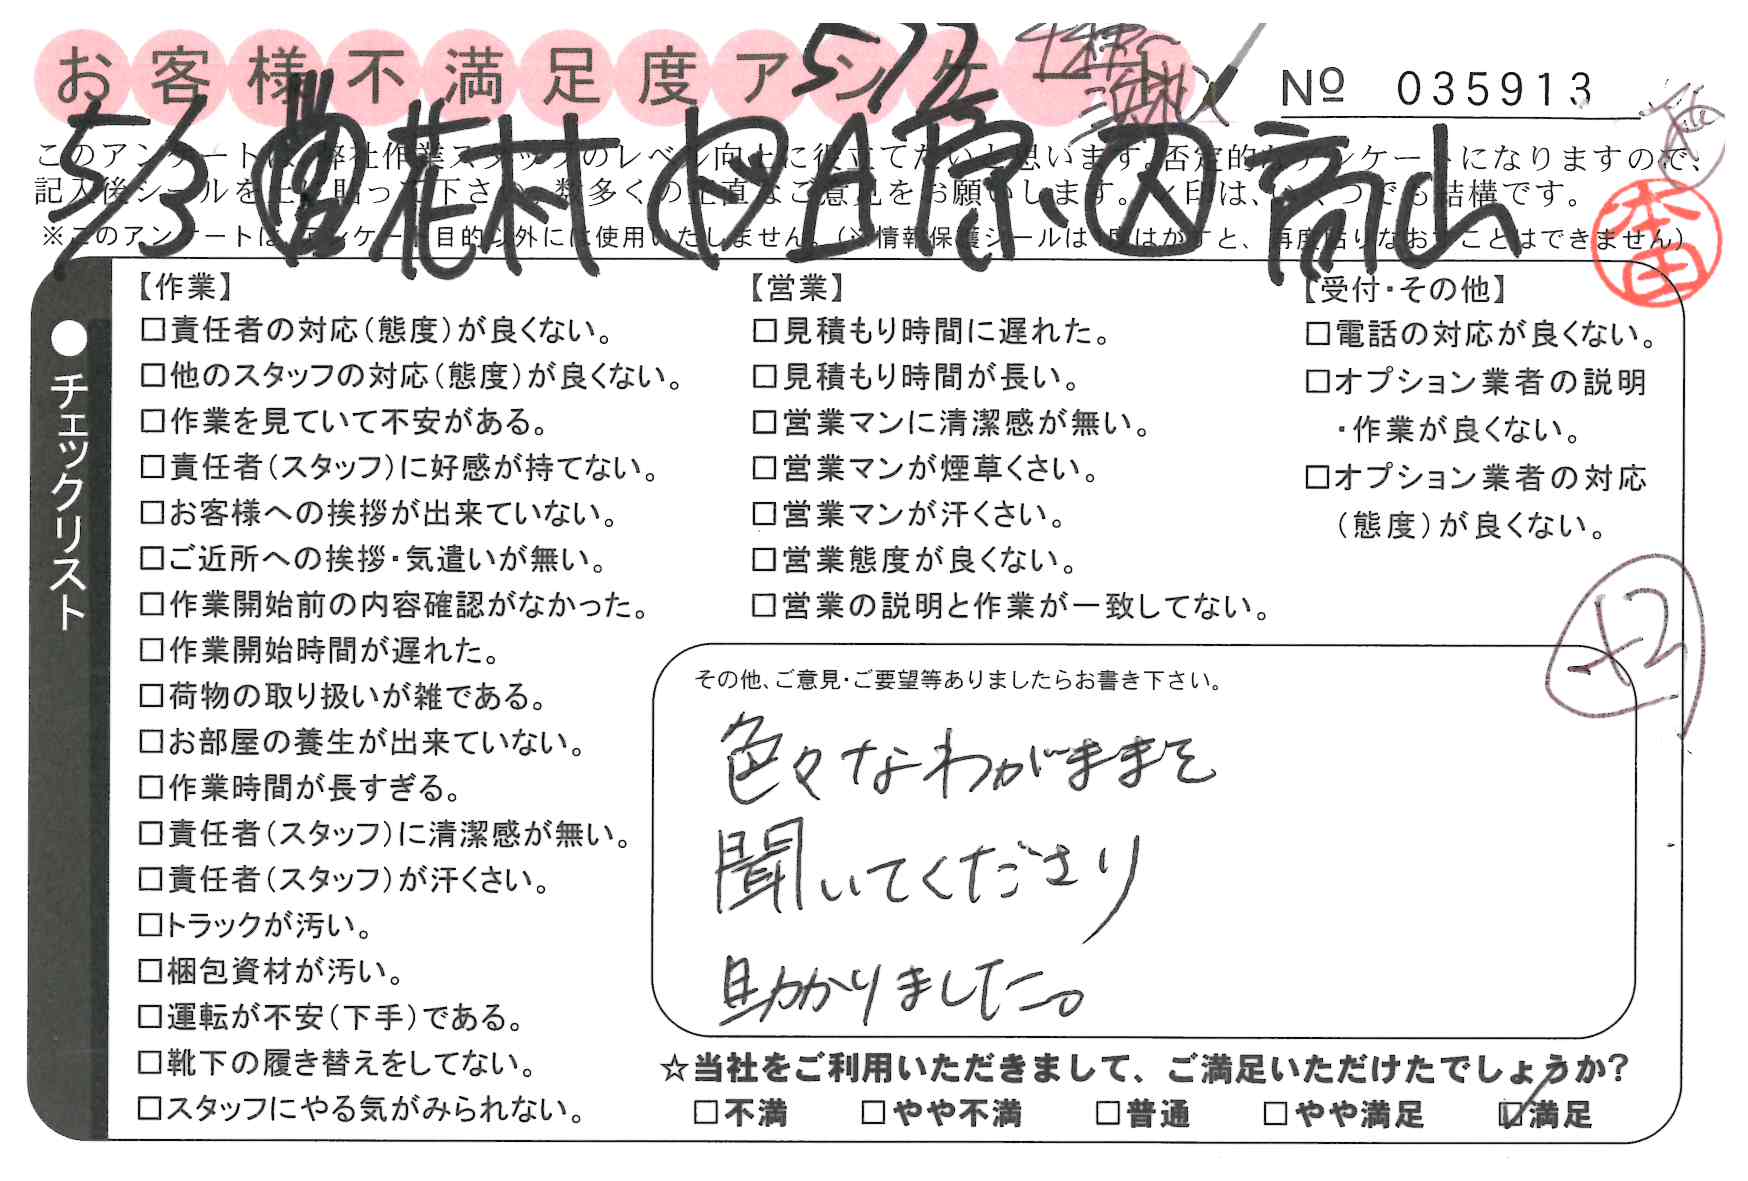 お客様不満足度アンケート
5/2
№ 035913
5/3 営花村 作 原、 高山
このアンケートは、弊社作業スタッフのレベル向上に役立てたいと思います。否定的なアンケートになりますので、
記入後シールを上に貼って下さい。数多くの正直なご意見をお願いします。✓印は、いくつでも結構です。
※このアンケートは、アンケート目的以外には使用いたしません。(※情報保護シールは1度はがすと、再度貼りなおすことはできません)
本田
●チェックリスト
【作業】
□責任者の対応(態度)が良くない。
□他のスタッフの対応(態度)が良くない。
□作業を見ていて不安がある。
□責任者(スタッフ)に好感が持てない。
□お客様への挨拶が出来ていない。
□ご近所への挨拶・気遣いが無い。
□作業開始前の内容確認がなかった。
□作業開始時間が遅れた。
□荷物の取り扱いが雑である。
□お部屋の養生が出来ていない。
□作業時間が長すぎる。
□責任者(スタッフ)に清潔感が無い。
□責任者(スタッフ)が汗くさい。
□トラックが汚い。
□梱包資材が汚い。
□運転が不安(下手)である。
□靴下の履き替えをしてない。
□スタッフにやる気がみられない。
【営業】
□見積もり時間に遅れた。
□見積もり時間が長い。
□営業マンに清潔感が無い。
□営業マンが煙草くさい。
□営業マンが汗くさい。
□営業態度が良くない。
□営業の説明と作業が一致してない。
【受付・その他】
□電話の対応が良くない。
□オプション業者の説明
・作業が良くない。
□オプション業者の対応
(態度)が良くない。
+2
その他、ご意見・ご要望等ありましたらお書き下さい。
色々なわがままを
聞いてくださり
助かりました。
☆当社をご利用いただきまして、ご満足いただけたでしょうか?
□不満 □やや不満 □普通 □やや満足 ☑満足